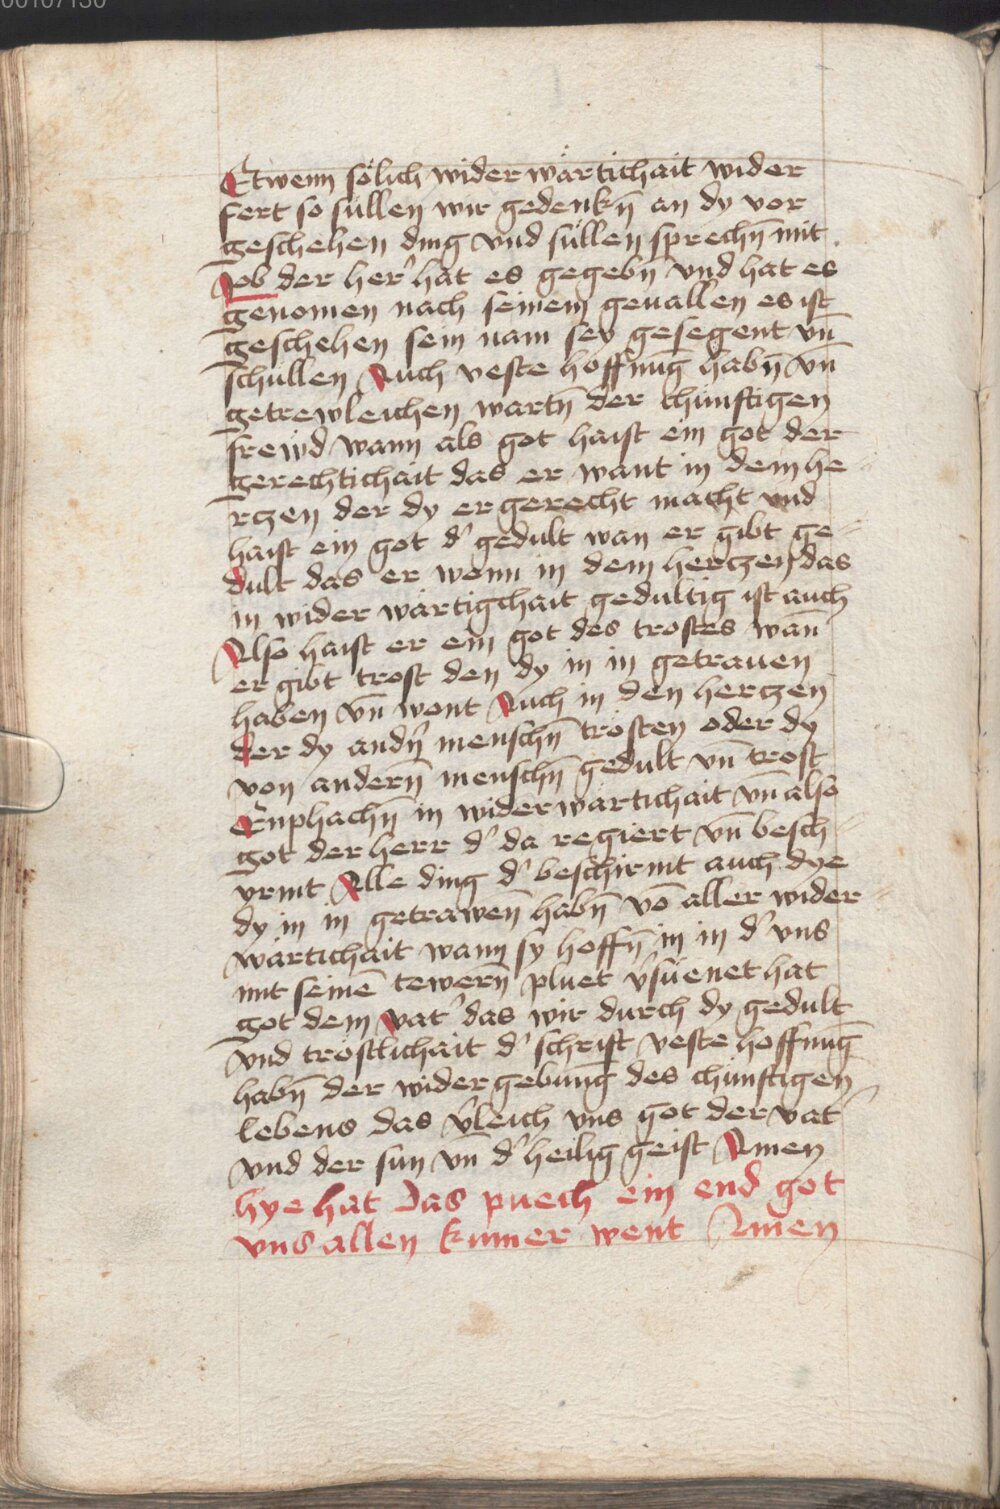 Etwenn sölich wider wärtichait wider
fert so süllen wir gedenkn̄ an dy vor
geschehen ding vnd süllen sprechn̄ mit
Job der her' hat es gegebn̄ vnd hat es
genomen nach seinem geuallen es ist
geschehen sein nam sey gesegent vn̄
schüllen Auch veste hoffnūg habn̄ vn̄
getrewleichen wartn̄ der chünftigen
frewd wann als got haist ein got der
gerechtichait das er want in dem he
rczen der dy er gerecht macht vnd
haist ein got d' gedult wan er gibt ge-
dult das er wonn in dem herczen das
in wider wärtigchait gedultig ist auch
Also haist er ein got des trostes wan̄
er gibt trost den dy in in getrauen
haben vn̄ wont Auch in den herczen
der dy andn̄ menschn̄ trösten oder dy
von andern̄ menschn̄ gedult vn̄ trost
Enphachn̄ in widerwärtichait vn̄ also
got der herr d' da regiert vn̄ besch-
yrmt Alle ding d' beschirmt auch dye
dy in in getrawen̄ habn̄ vō aller wider-
wärtichait wann sy hoffn̄ in in d' vns
mit seinē tewern̄ pluet v'süenet hat
got dem vat' das wir durch dy gedult
vnd tröstlichait d' schrift veste hoffnūg
habn̄ der widergebung des chünftigen
lebens das v'leich vns got der vat'
vnd der sun vn̄ d' heilig geist Amen
hye hat das puech ein end got
vns allen kumer went Amen